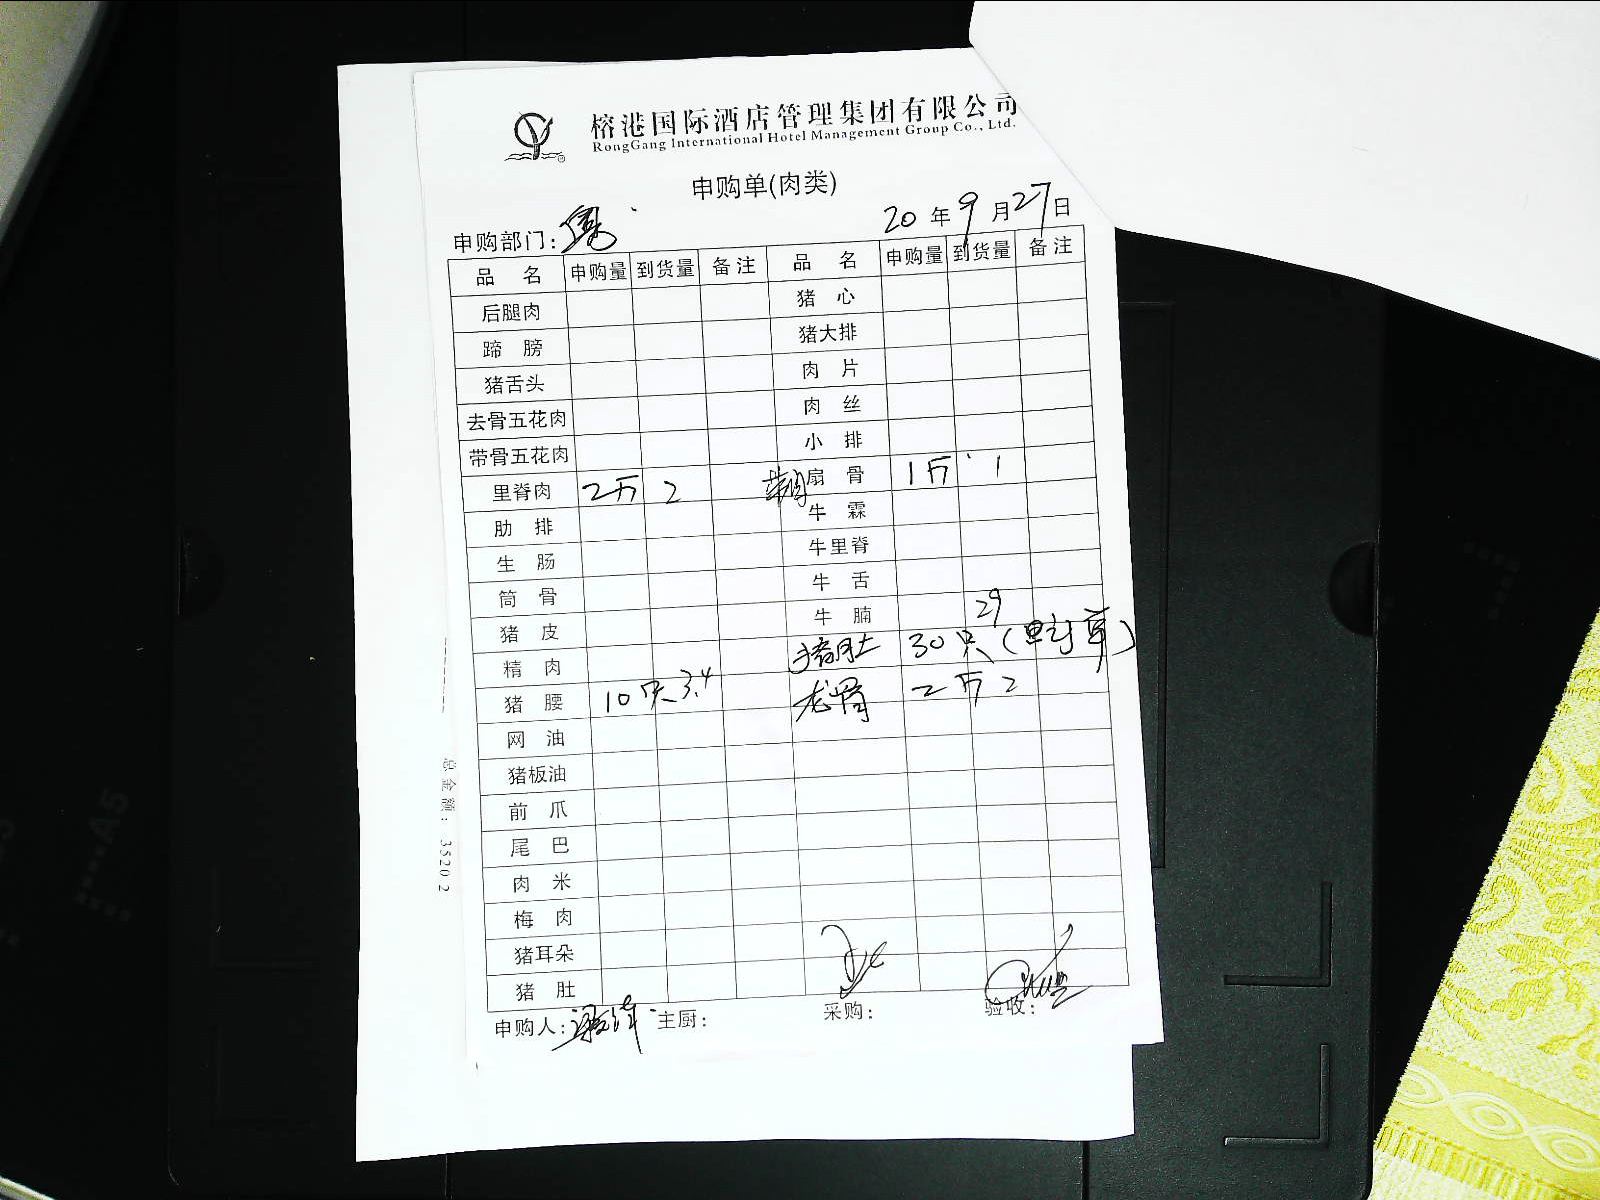 榕港国际酒店管理集团有限公司
RongGang International Hotel Management Group Co., Ltd.
申购单(肉类)
申购部门：
20 年 9 月 27 日
品 名 申购量 到货量 备注 品 名 申购量 到货量 备注
后腿肉 猪 心
蹄 膀 猪大排
猪舌头 肉 片
去骨五花肉 肉 丝
带骨五花肉 小 排
里脊肉 2斤 2 带肉 扇 骨 1斤 1
肋 排 牛 霖
生 肠 牛里脊
筒 骨 牛 舌
猪 皮 牛 腩 29
精 肉 猪肚 30只
猪 腰 10只 3.4 龙骨 2斤 2
网 油
猪板油
前 爪
尾 巴
肉 米
梅 肉
猪耳朵
猪 肚
申购人： 主厨： 采购： 验收：
总金额： 3520.2